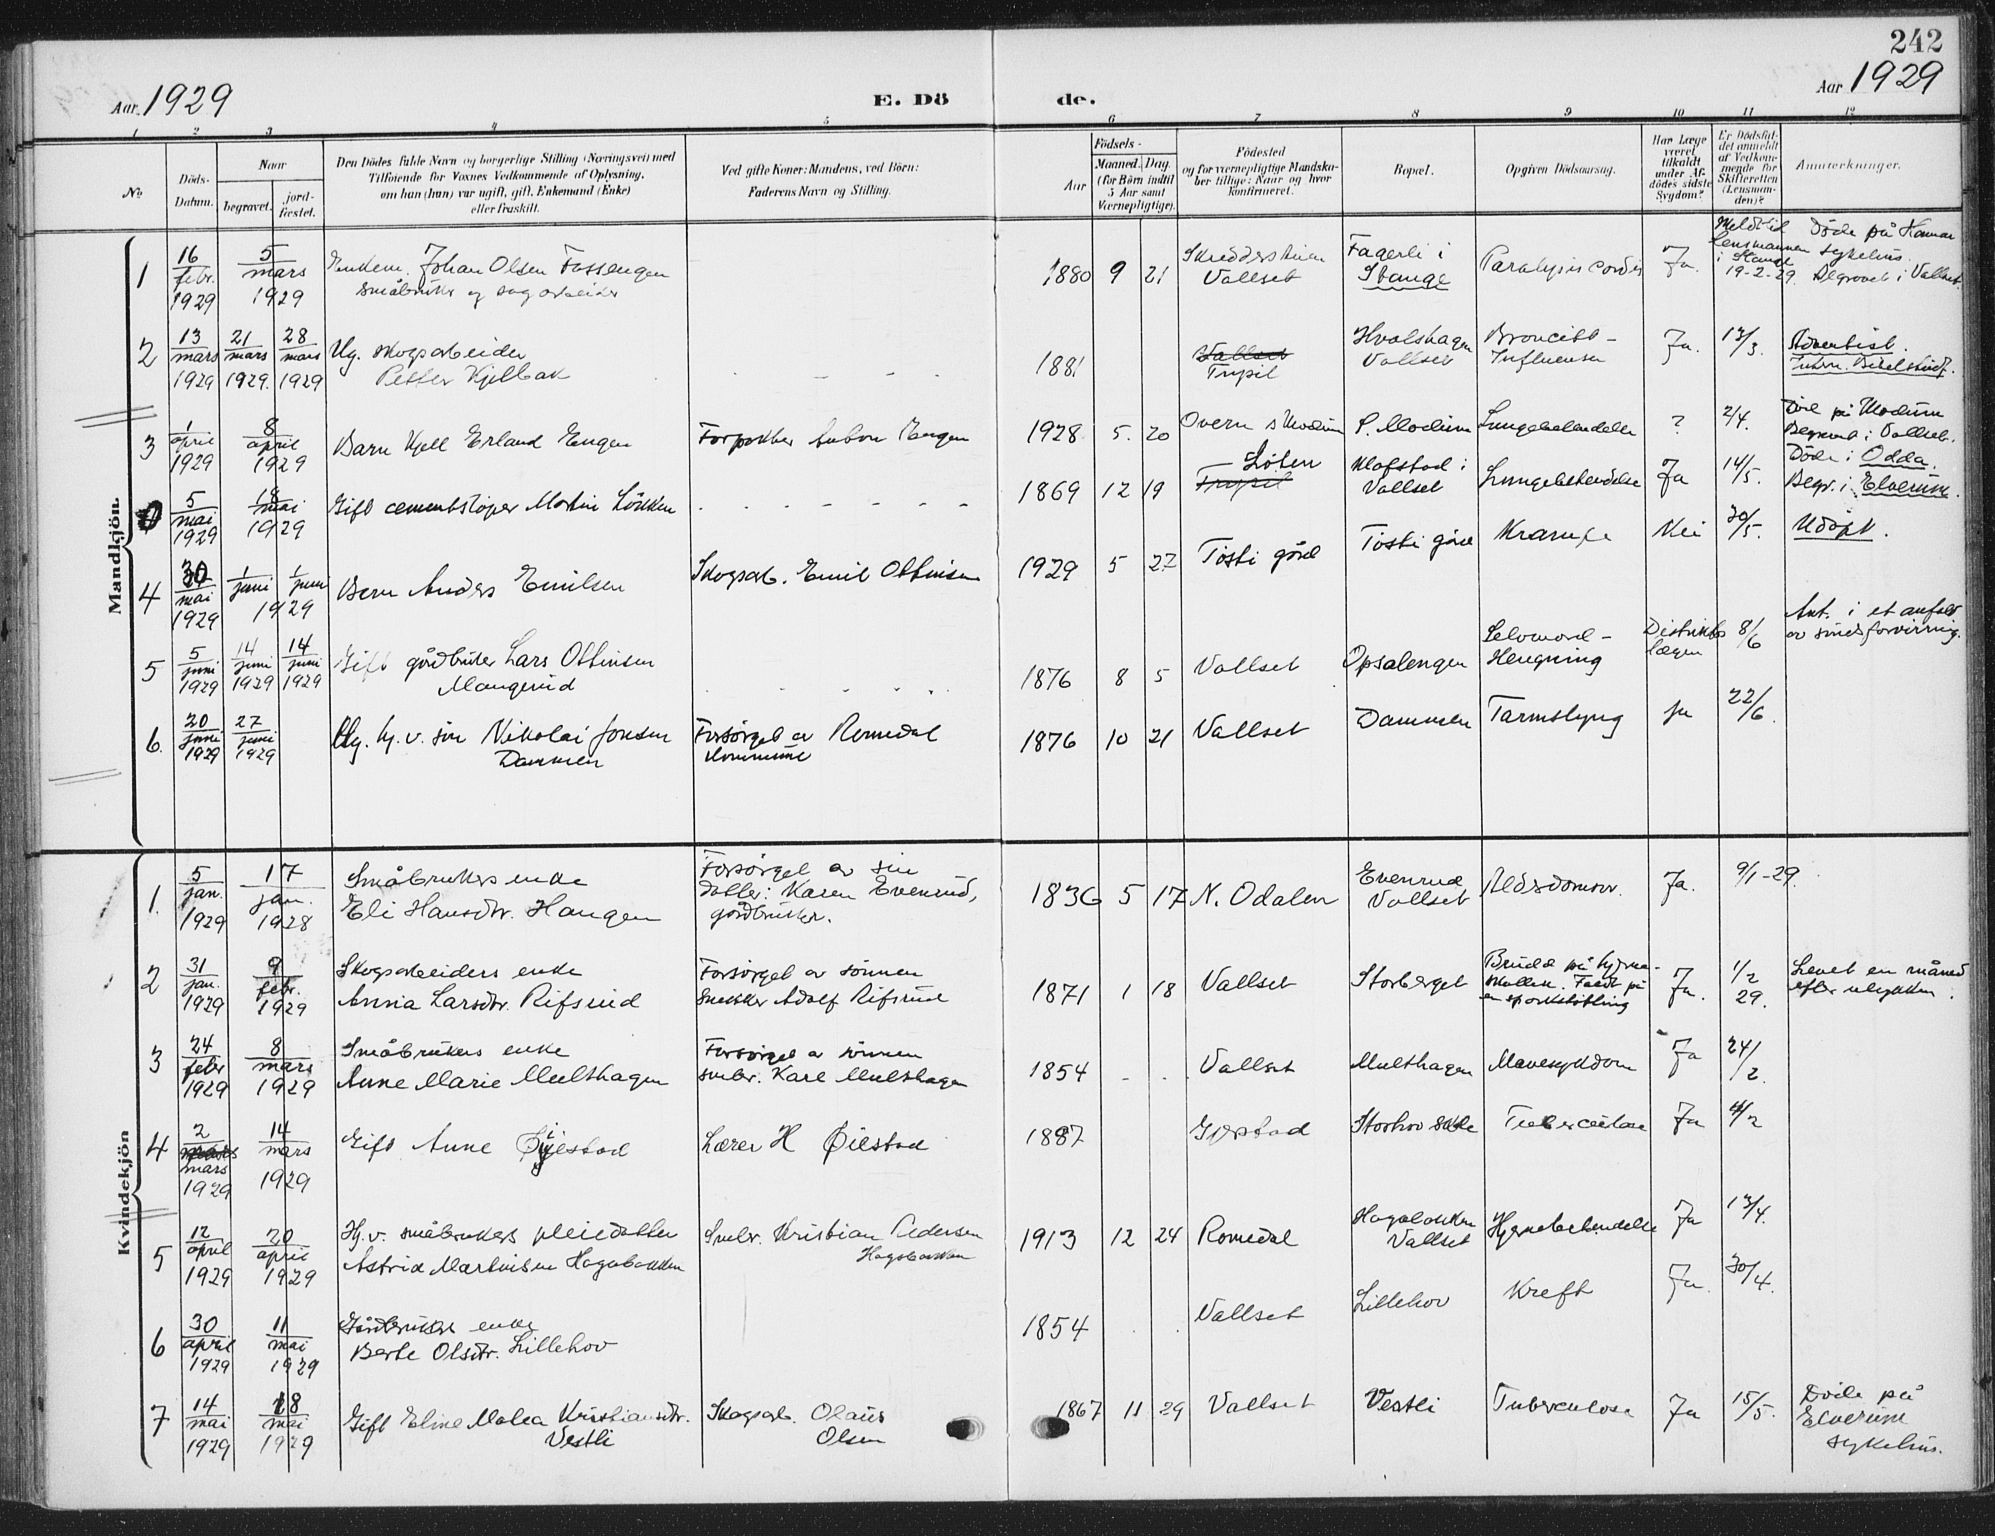 242
Aar 1929
E. Döde.
Aar 1929
1 2 3 4 5 6 7 8 9 10 11 12
No
Döds-Datum.
Naar
begravet.
jord-fæstet.
Den Dödes fulde Navn og borgerlige Stilling (Næringsvei) med
Tilföiende for Voxnes Vedkommende af Oplysning,
om han (hun) var ugift, gift, Enkemand (Enke)
eller fraskilt.
Ved gifte Koner: Mandens, ved Börn:
Faderens Navn og Stilling.
Födsels-
Aar
Maaned. Dag.
(for Börn indtil
5 Aar samt
Værnepligtige).
Födested
og for værnepligtige Mandska-
ber tillige: Naar og hvor
konfirmeret.
Bopæl.
Opgiven Dödsaarsag.
Har Læge
været
tilkaldt
under Af-
dödes sidste
Sygdom?
Er Dödsfal-
det anmeldt
af Vedkom-
mende for
Skifteretten
(Lensman-
den)?
Anmærkninger.
Mandkjön.
1 16 febr. 1929 5 mars 1929 Enkem. Johan Olsen Fossengen
småbruker og sagarbeider
1880 9 21 Vallset Fagerli i Stange Paralysis cordis Ja. Meldt til Lensmannen i Stange 19-2-29. Döde på Hamar sykehus. Begravet i Vallset.
2 13 mars 1929 21 mars 1929. 28 mars 1929 Ug. skogsarbeider
Petter Kjelbak
1881 Vallset Trysil Hvalshagen Vallset Broncitt - Influensa Ja. 13/3. Adventist.
3 1 april 1929 8 april 1929 Barn Kjell Erland Engen Forpakter Anton Engen 1928 5. 20 Overn s Modum S. Modum Lungebetendelse ? 2/4. Död på Modum Begravet i Vallset.
5 mai 1929 18 mai 1929 Gift cementstöper Martin Lökken 1869 12 19 Löten Trysil Klofstad i Vallset Lungebetendelse Ja 14/5. Döde i Odda. Begr. i Elverum.
4 30 mai 1929 1 juni 1 juni 1929 Barn Anders Emilsen Skogsarb. Emil Ottinsen 1929 5 27 Tosti gård Tosti gård Krampe Nei 30/5. Udöpt.
5 5 juni 1929 14 juni 1929 14 juni 1929 Gift gårdbruker Lars Ottinsen
Mangerud
1876 8 5 Vallset Opsalengen Selvmord - Hengning Distriktslægen 8/6 Ant. i et anfald av sindsforvirring.
6. 20 juni 1929 27 juni 1929 Ug. hj. v. sön Nikolai Jonsen
Dammen
Forsörget av Romedal
Kommune
1876 10 21 Vallset Dammen Tarmslyng ja 22/6.
Kvindekjön
1. 5 jan. 1929 17 jan. 1928 Småbrukers enke
Eli Hansdtr. Haugen
Forsörget av sin
datter: Karen Evenrud,
gårdbruker.
1836 5 17 N. Odalen Evenrud Vallset Aldersdomssv. Ja. 9/1-29.
2 31 jan. 1929 9 febr. 1929 Skogsarbeiders enke
Anna Larsdtr. Rifsrud
Forsörget av sönnen
snekker Adolf Rifsrud
1871 1 18 Vallset Storberget Brudd på hjerneskallen. Faldt på en sparkstötting Ja. 1/2 29. Levet en måned efter ulykken.
3 24 febr 1929 8 mars 1929 Småbrukers enke
Anne Marie Multhagen
Forsörget av sönnen
småbr. Karl Multhagen
1854 Vallset Multhagen Mavesykdom Ja 24/2.
4 2 mars 1929 14 mars 1929 Gift Anne Öiestad Lærer H Öiestad 1887 Storhov skole Tuberculose Ja 4/2
5 12 april 1929 20 april 1929 Hj. v. småbrukers pleiedatter
Astrid Martinsen Hagabakken
Småbr. Kristian Pedersen
Hagabakken
1913 12 24 Romedal Hagabakken Vallset Hjernebetendelse Ja 13/4.
6 30 april 1929 11 mai 1929 Gårdbrukers enke
Berte Olsdtr. Lillehov
1854 Vallset Lillehov Kreft Ja. 30/4.
7 14 mai 1929 18 mai 1929 Gift Eline Malea Kristiansdtr.
Vestli
Skogsarb. Olaus
Olsen
1867 11 29 Vallset Vestli Tuberculose Ja 15/5. Döde på Elverum sykehus.